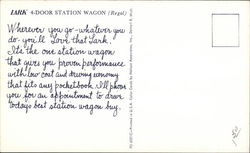 LARK 4-DOOR STATION WAGON (Regal)
Wherever you go - whatever you
do - you'll Love that Lark.
It's the one station wagon
that gives you proven performance
with low cost and driving economy
that fits any pocketbook. I'll phone
you for an appointment to drive
todays best station wagon buy.